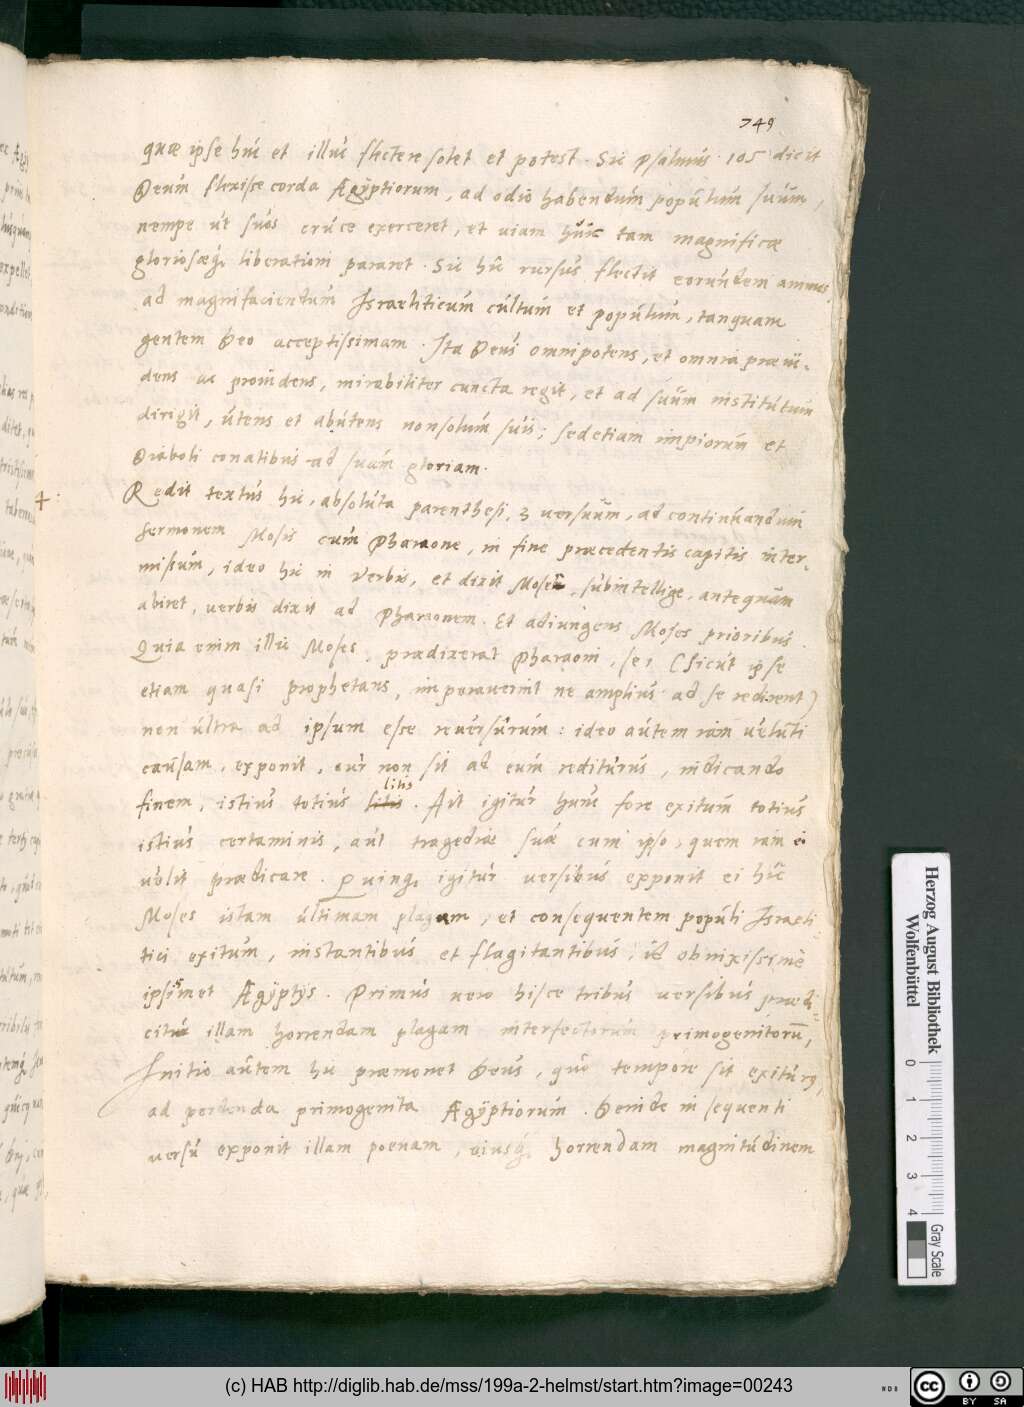 749
quæ ipse huc et illuc flectere solet et potest. Sic psalmus. 105 dicit
Deum flexisse corda Ægÿptiorum, ad odio habendum populum suum,
nempe ut suos cruce exerceret, et viam huic tam magnificæ
gloriosæq; liberationi pararet. Sic hic rursus flectit eorundem animus
ad magnifaciendum Israeliticum cultum et populum, tanquam
gentem Deo acceptissimam. Ita Deus omnipotens, et omnia prævi-
dens ac providens, mirabiliter cuncta regit, et ad suum institutum
dirigit, utens et abutens non solum suis; sed etiam impiorum et
Diaboli conatibus ad suam gloriam.
Redit textus hic, absoluta parenthesi, 3 versuum, ad continuandum
sermonem Mosis cum Pharaone, in fine præcedentis capitis inter-
missum, ideo hic in verbis, et dixit Moses, subintellige, antequam
abiret, verbis dixit ad Pharaonem. Et adiungens Moses prioribus.
Quia enim illic Moses, prædixerat Pharaoni, se, (sicut ipse
etiam quasi prophetans, imperaverint ne amplius ad se redirent)
non ultra ad ipsum esse reversurum: ideo autem iam veluti
causam, exponit, cur non sit ad eum rediturus, indicando
litis
finem, istius totius litis. Ait igitur hunc fore exitum totius
istius certaminis, aut tragediæ suæ cum ipso, quem iam ei
velit prædicare. Quinq; igitur versibus exponit ei hic
Moses istam ultimam plagam, et consequentem populi Israeli-
tici exitum, instantibus et flagitantibus, id obnixissime
ipsismet Ægÿptÿs. Primus vero hisce tribus versibus prædi-
citur illam horrendam plagam interfectorum primogenitorū,
Initio autem hic præmonet Deus, quo tempore sit exiturꝰ,
ad perdenda primogenita Ægÿptiorum. Deinde in sequenti
versu exponit illam poenam, eiusq; horrendam magnitudinem
Herzog August Bibliothek
Wolfenbüttel
0 1 2 3 4
Gray Scale
(c) HAB http://diglib.hab.de/mss/199a-2-helmst/start.htm?image=00243
cc BY SA